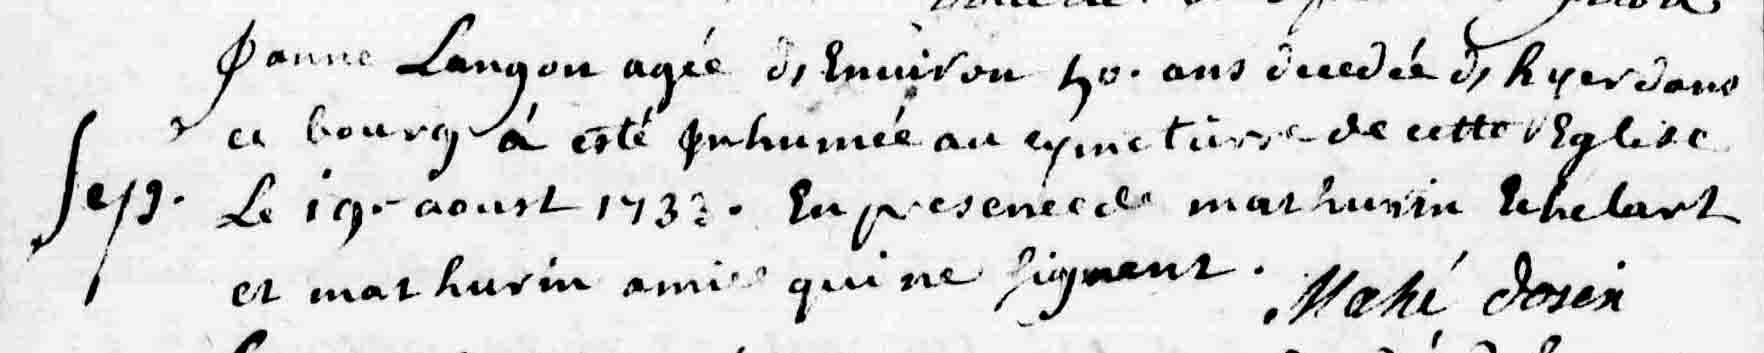 Janne Langon agée d'Environ 50. ans decedée d'hyer dans
ce bourg á esté Inhumée au cymetierre de cette Eglise
Sep. Le 19. aoust 1733. En presence de mathurin Echelart
et mathurin amice qui ne signent. Mahé